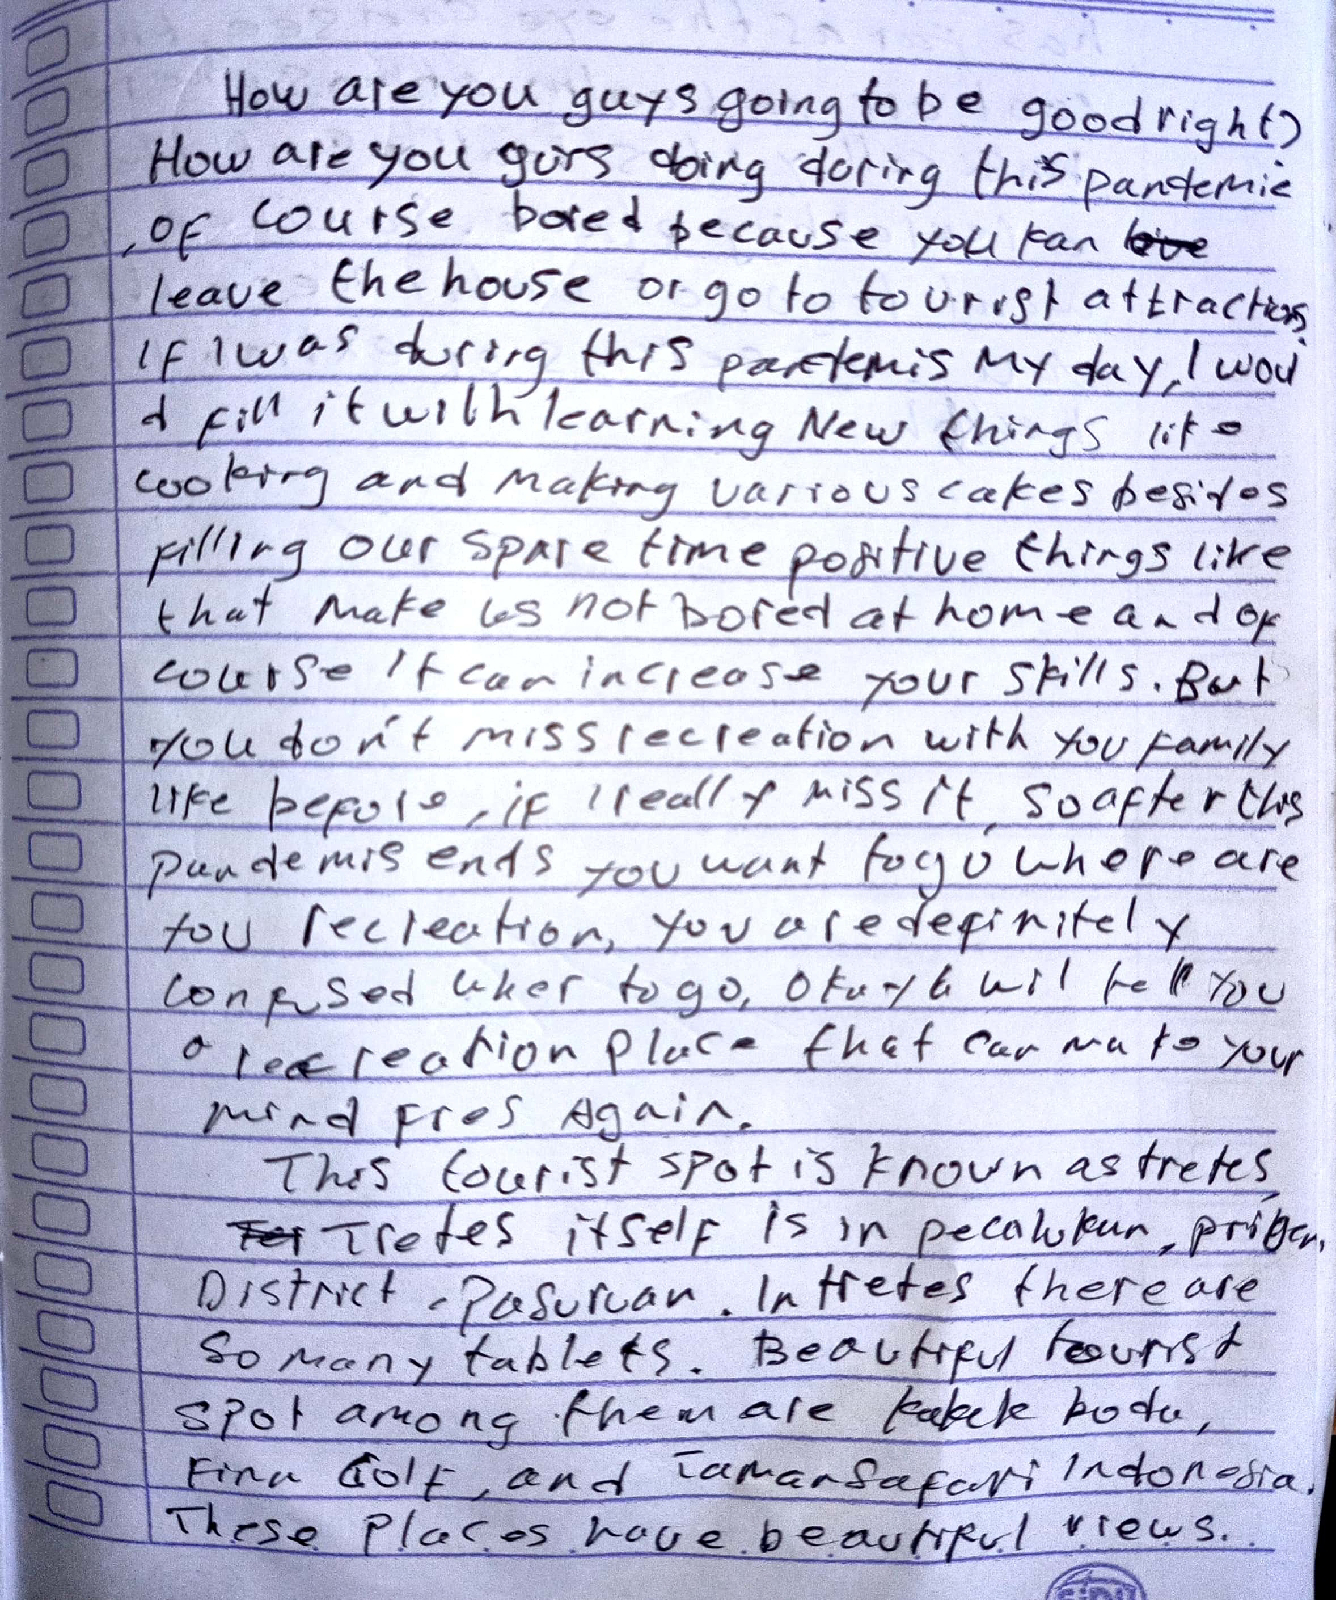 How are you guys going to be good right?
How are you guys doing during this pandemic
, of course bored because you kan
leave the house or go to tourist attractions
If I was during this pandemis My day, I woul
d fill it with learning New things like
cooking and making various cakes besides
filling our spare time positive things like
that make us not bored at home and of
course It can increase your skills. But
you don't miss recreation with you family
like before, if I really miss it, so after this
pandemis ends you want to go where are
you recreation, you are definitely
confused wher to go, Okay wil tell you
a recreation place that can make your
mind fres Again.
This tourist spot is known as tretes,
Tretes itself is in pecalukan, prigen,
District, Pasuruan. In tretes there are
So many tablets. Beautiful tourist
spot among them are kakek bodo,
Finn Golf, and Taman Safari Indonesia.
These places have beautiful views.
SiDU